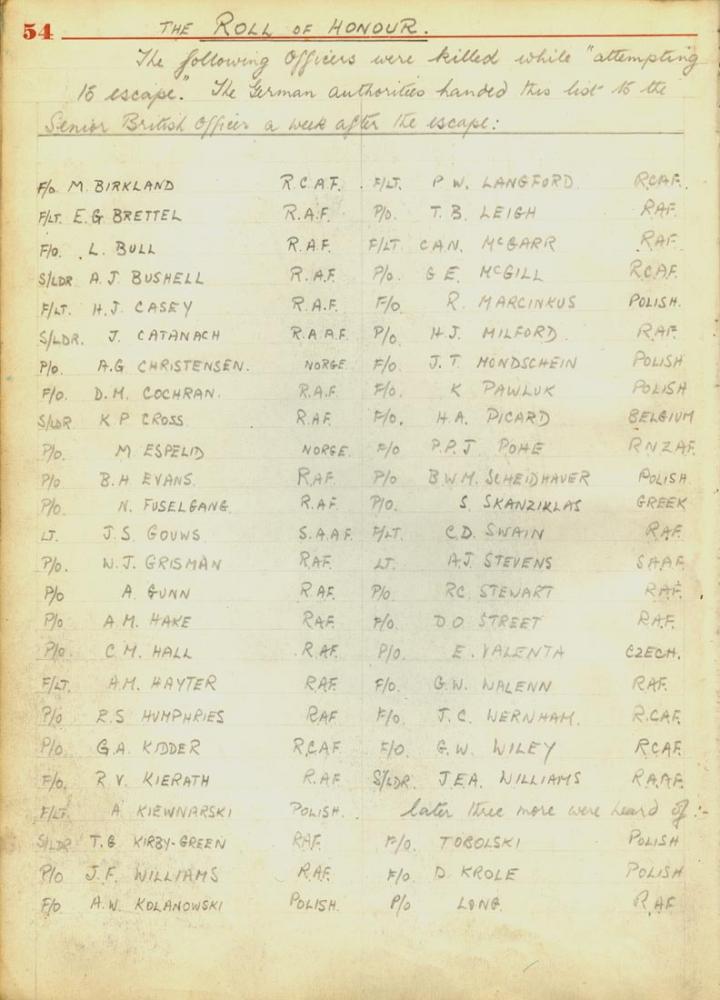 54 THE ROLL OF HONOUR.
The following Officers were killed while "attempting
to escape." The German authorities handed this list to the
Senior British Officer a week after the escape:
F/O M. BIRKLAND R.C.A.F.
F/LT. E.G BRETTEL R.A.F.
F/O. L. BULL R.A.F.
S/LDR A.J BUSHELL R.A.F.
F/LT. H.J. CASEY R.A.F.
S/LDR. J. CATANACH R.A.A.F.
P/O. A.G CHRISTENSEN. NORGE.
F/O. D.M. COCHRAN. R.A.F.
S/LDR K P CROSS R.A.F.
P/O. M ESPELID NORGE.
P/O. B.H EVANS R.A.F.
P/O. N. FUSELGANG. R.A.F.
LT. J.S. GOUWS S.A.A.F.
P/O. W.J. GRISMAN RAF.
P/O A. GUNN R.A.F.
P/O A.M. HAKE RAF.
P/O. C.M. HALL R.A.F.
F/LT. A.M. HAYTER RAF.
P/O E.S HUMPHRIES RAF
P/O. G.A. KIDDER R.C.A.F.
F/O. R V. KIERATH R.A.F
F/LT. A KIEWNARSKI POLISH.
S/LDR T.G KIRBY-GREEN RAF.
P/O J.F. WILLIAMS R.A.F.
F/O A.W. KOLANOWSKI POLISH.
F/LT. P W. LANGFORD RCAF.
P/O. T.B. LEIGH RAF.
F/LT C.A.N. McGARR RAF.
P/O. G E. McGILL R.C.A.F.
F/O R. MARCINKUS POLISH.
P/O H.J. MILFORD. RAF.
F/O. J.T. MONDSCHEIN POLISH
F/O. K PAWLUK POLISH
F/O. H.A. PICARD BELGIUM
F/O P.P.J POHE R N Z A F.
P/O B.W.M. SCHEIDHAUER POLISH.
P/O. S. SKANZIKLAS GREEK
F/LT. C.D. SWAIN RAF.
LT. A.J. STEVENS SAAF.
P/O. RC. STEWART RAF.
F/O. D O STREET RAF.
P/O. E. VALENTA CZECH.
F/O. G.W. WALENN RAF.
F/O. J.C. WERNHAM. R.C.AF.
F/O. G.W. WILEY RCAF.
S/LDR. J.E.A. WILLIAMS R.A.A.F.
later three more were heard of :-
F/O. TOBOLSKI POLISH
F/O D. KROLE POLISH
P/O LONG. R.AF